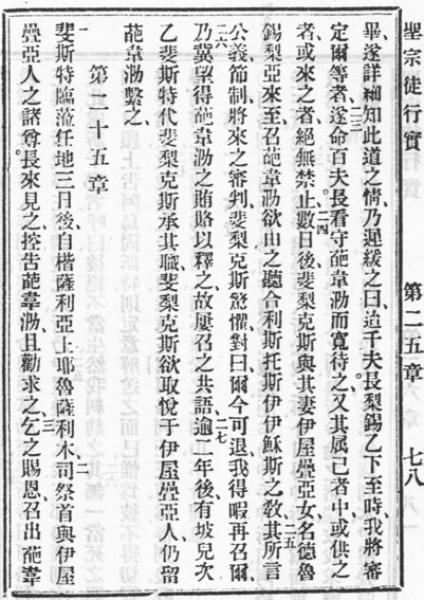 聖宗徒行實 第二五章 七八
畢、遂詳細知此道之情、乃遲緩之曰、迨千夫長梨錫乙下至時、我將審
定爾等者、二三遂命百夫長看守葩韋泐而寬待之、又其属己者中、或供之
者、或來之者、絕無禁止、二四數日後、斐梨克斯與其妻伊屋疊亞女名德魯
錫梨亞來、至召葩韋泐欲由之聽合利斯托斯伊伊穌斯之敎、二五其所言
公義節制、將來之審判、斐梨克斯驚懼對曰、爾今可退、我得暇再召爾、
二六乃冀望得葩韋泐之賄賂以釋之、故屢召之共語、二七逾二年後、有坡兒次
乙斐斯特代斐梨克斯承其職、斐梨克斯欲取悅于伊屋疊亞人、仍留
葩韋泐繫之、
第一十五章
一斐斯特臨蒞任地三日後、自楷薩利亞上耶魯薩利木、二司祭首與伊屋
疊亞人之諸尊長來見之、控告葩韋泐、且勸求之、三乞之賜恩、召出葩韋